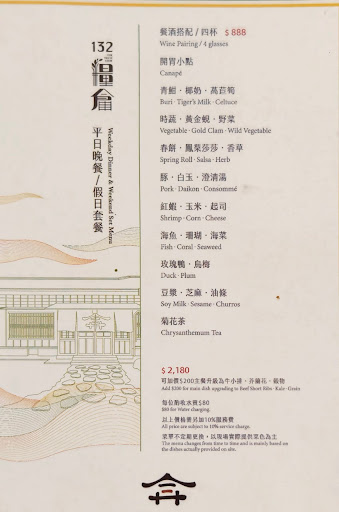 132
糧倉
平日晚餐/假日套餐
Weekday Dinner & Weekend Set Menu
餐酒搭配 / 四杯 $ 888
Wine Pairing / 4 glasses
開胃小點
Canapé
青魽 · 椰奶 · 萵苣筍
Buri · Tiger's Milk · Celtuce
時蔬 · 黃金蜆 · 野菜
Vegetable · Gold Clam · Wild Vegetable
春餅 · 鳳梨莎莎 · 香草
Spring Roll · Salsa · Herb
豚 · 白玉 · 澄清湯
Pork · Daikon · Consommé
紅蝦 · 玉米 · 起司
Shrimp · Corn · Cheese
海魚 · 珊瑚 · 海菜
Fish · Coral · Seaweed
玫瑰鴨 · 烏梅
Duck · Plum
豆漿 · 芝麻 · 油條
Soy Milk · Sesame · Churros
菊花茶
Chrysanthemum Tea
$ 2,180
可加價$200主餐升級為牛小排 · 芥蘭花 · 穀物
Add $200 for main dish upgrading to Beef Short Ribs · Kale · Grain
每位酌收水資$80
$80 for Water charging.
以上價格需另加10%服務費
All price are subject to 10% service charge.
菜單不定期更換，以現場實際提供菜色為主
The menu changes from time to time and is mainly based on
the dishes actually provided on site.